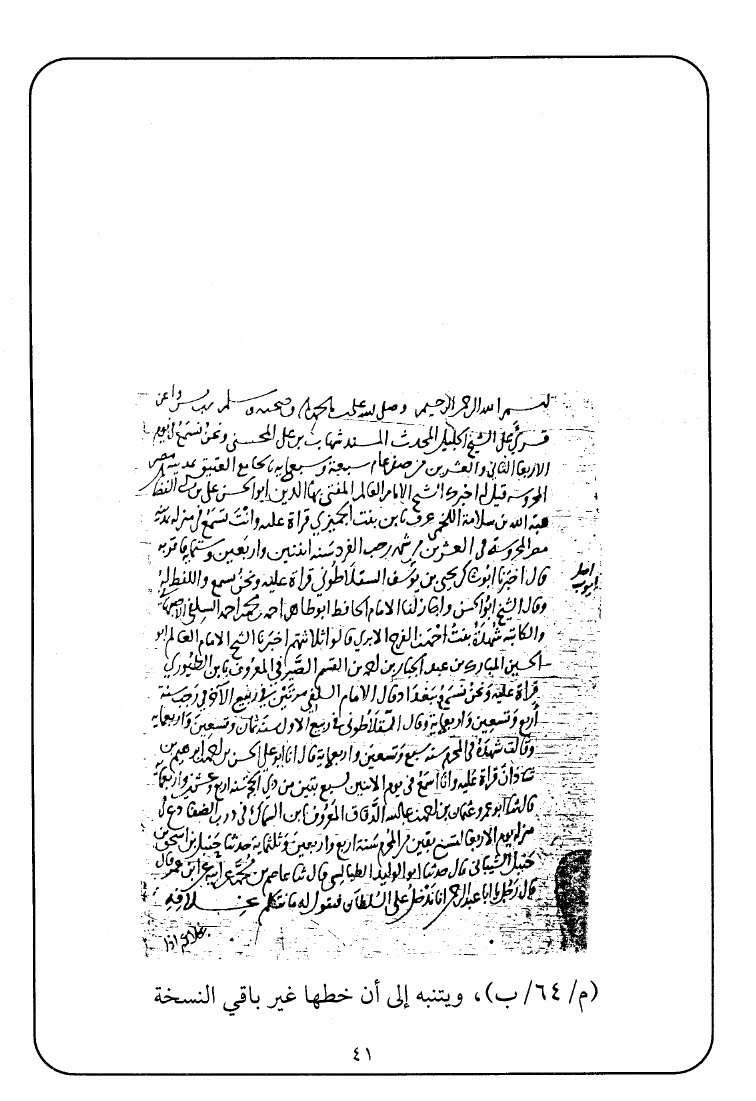 بسم الله الرحمن الرحيم وصلى الله على محمد وصحبه وسلم
قرئ على الشيخ الجليل المحدث المسند شهاب بن علي المحسني ونحن نسمع
الاربعا الثاني والعشرين من صفر عام سبعة وسبعمايه بالجامع العتيق بمدينة مصر
المحروسه قيل له اخبرك الشيخ الامام العالم المفتي بها الدين ابو الحسن علي بن
هبة الله بن سلامة اللخمي عرف بابن بنت الجميزي قراة عليه وانت تسمع في منزله بمدينة
مصر المحروسة في العشرين من شهر رجب الفرد سنه اثنتين واربعين وستمايه
قال اخبرنا ابو زكريا يحيى بن يوسف السقلاطوني قراة عليه ونحن نسمع واللفظ له
وقال الشيخ ابو الحسن واجاز لنا الامام الحافظ ابو طاهر احمد بن محمد بن احمد السلفي الاصبهاني
والكاتبه شهدة بنت احمد بن الفرج الابري قالوا ثلاثتهم اخبرنا الشيخ الامام العالم ابو
الحسين المبارك بن عبد الجبار بن احمد بن القسم الصيرفي المعروف بابن الطيوري
قراة عليه ونحن نسمع ببغداد قال الامام السلفي مرتين في ربيع الآخر وفي رجب سنة
أربع وتسعين واربعمايه وقال السقلاطوني في ربيع الاول سنه ثمان وتسعين واربعمايه
وقالت شهدة في المحرم سنه سبع وتسعين واربعمايه قال انا ابو علي الحسن بن احمد بن ابرهيم بن
شاذان قراة عليه وانا اسمع في يوم الاثنين لسبع بقين من ذي الحجة سنه اربع وعشرين واربعمايه
قال ثنا ابو عمرو عثمان بن احمد بن عبد الله الدقاق المعروف بابن السماك في درب الضفادع في
منزله يوم الاربعا لتسع بقين من المحرم سنة اربع واربعين وثلثمايه حدثنا حنبل بن اسحق بن
حنبل الشيباني قال حدثنا ابو الوليد الطيالسي قال ثنا عاصم بن محمد عن ابيه عن ابن عمر قال
قال رجل يا ابا عبد الرحمن انا ندخل على السلطان فنقول له ما نتكلم بخلافه
بخلافه اذا
(م/ ٦٤/ ب)، ويتنبه إلى أن خطها غير باقي النسخة
٤١